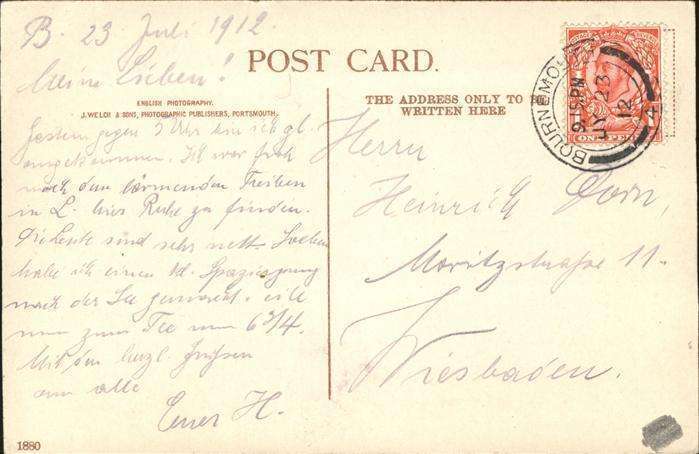 B. 23 Juli 1912
POST CARD.
Meine Lieben!
ENGLISH PHOTOGRAPHY.
J. WELCH & SONS, PHOTOGRAPHIC PUBLISHERS, PORTSMOUTH.
THE ADDRESS ONLY TO BE
WRITTEN HERE
BOURNEMOUTH
9.15 PM
JY 23
12
4
Gestern gegen 5 Uhr bin ich gl.
angekommen. Ich war froh
nach dem lärmenden Treiben
in L. hier Ruhe zu finden.
Die Leute sind sehr nett. Soeben
habe ich einen kl. Spaziergang
nach der See gemacht. eile
nun zum Tee um 6 3/4.
Mit den herzl. Grüßen
an alle
Euer H.
Herrn
Heinrich Dorn,
Moritzstrasse 11.
Wiesbaden.
1880